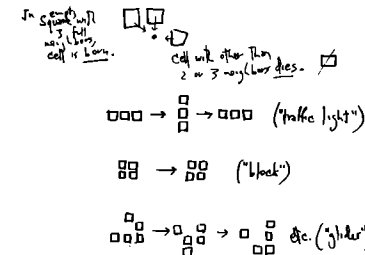 In empty
square with
3 full
neighbors,
cell is born.
cell with other than
2 or 3 neighbors dies.
("traffic light")
("block")
etc. ("glider")